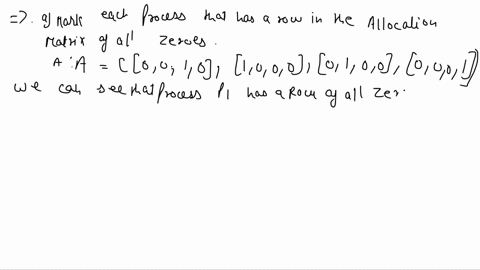 =>. of mark each process that has a row in the Allocation
matrix of all zeroes.
A : A = ( [0,0,1,0], [1,0,0,0], [0,1,0,0], [0,0,0,1])
we can see that process P1 has a Row of all zer.